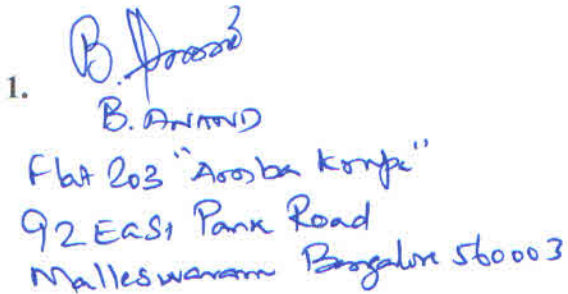 1. B. Anand
B. ANAND
Flat 203 "
92 East Park Road
Malleswaram Bangalore 560003